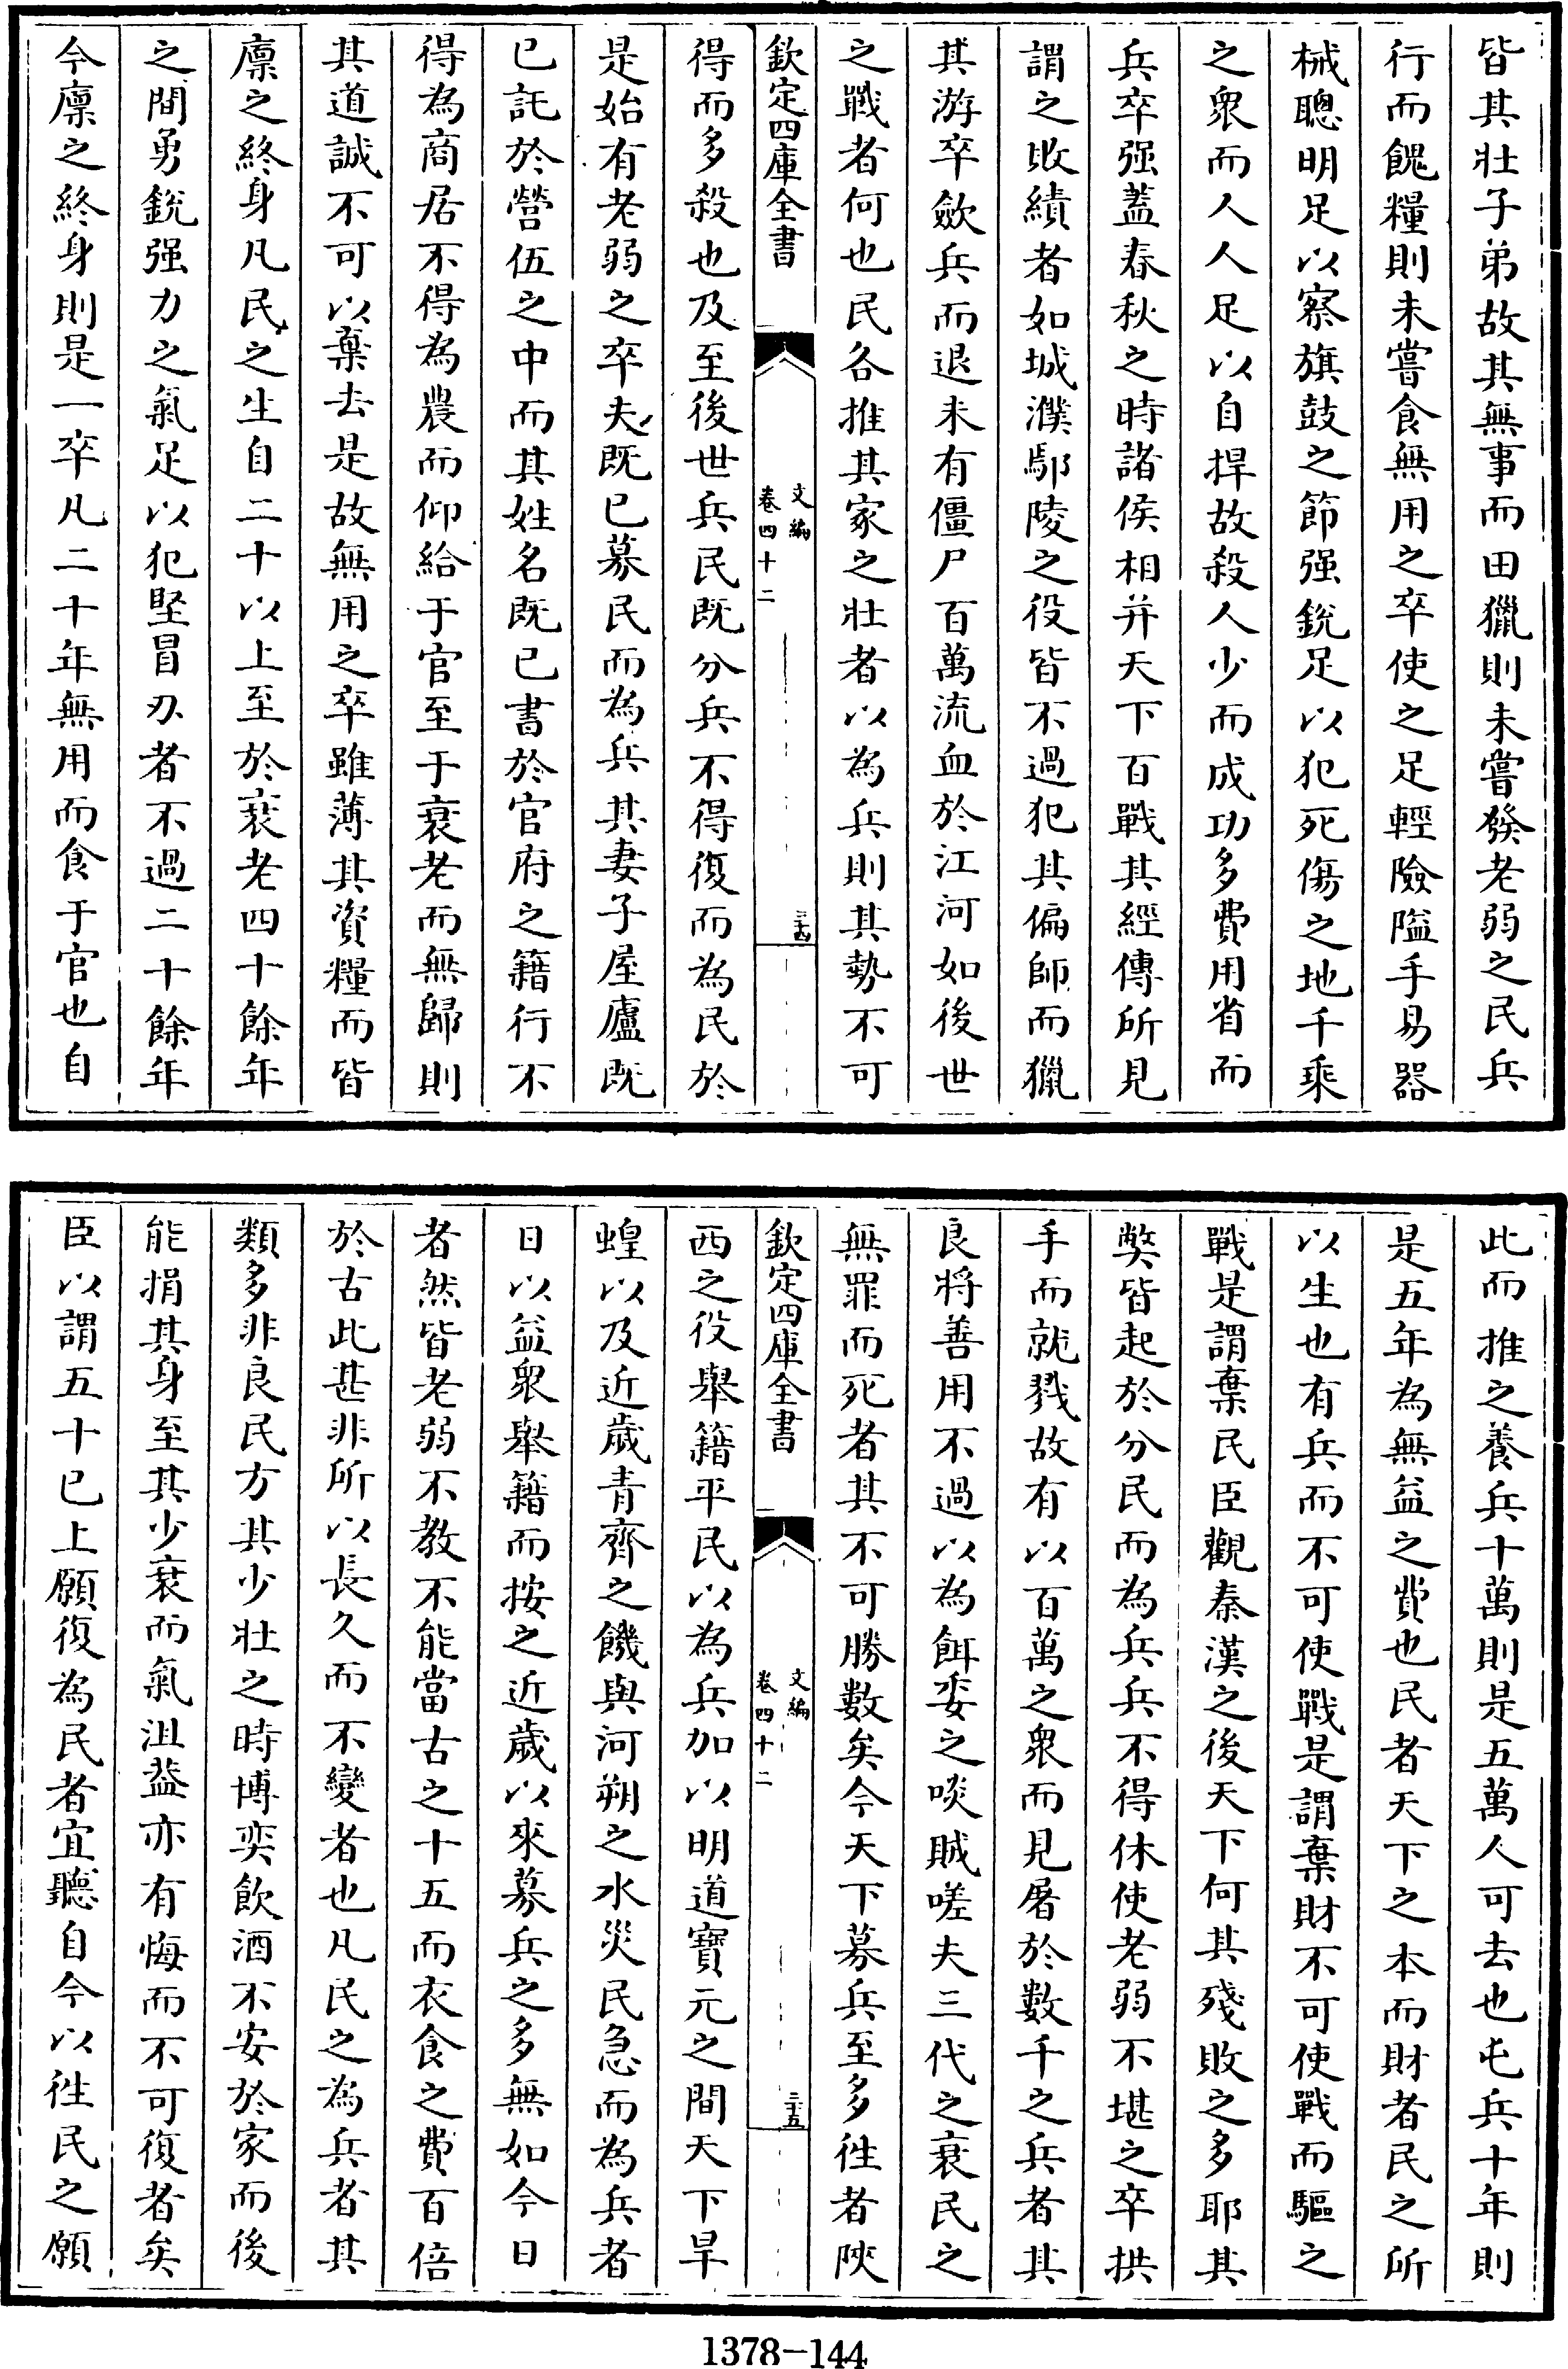 皆其壯子弟故其無事而田獵則未嘗發老弱之民兵
行而餽糧則未嘗食無用之卒使之足輕險隘手易器
械聰明足以察旗鼓之節强銳足以犯死傷之地千乘
之衆而人人足以自捍故殺人少而成功多費用省而
兵卒强蓋春秋之時諸侯相并天下百戰其經傳所見
謂之敗績者如城濮鄢陵之役皆不過犯其偏師而獵
其游卒歛兵而退未有僵尸百萬流血於江河如後世
之戰者何也民各推其家之壯者以為兵則其勢不可
欽定四庫全書
文編
卷四十二
三十四
得而多殺也及至後世兵民既分兵不得復而為民於
是始有老弱之卒夫既已募民而為兵其妻子屋廬既
已託於營伍之中而其姓名既已書於官府之籍行不
得為商居不得為農而仰給于官至于衰老而無歸則
其道誠不可以棄去是故無用之卒雖薄其資糧而皆
廩之終身凡民之生自二十以上至於衰老四十餘年
之間勇銳强力之氣足以犯堅冒刃者不過二十餘年
今廩之終身則是一卒凡二十年無用而食于官也自
此而推之養兵十萬則是五萬人可去也屯兵十年則
是五年為無益之費也民者天下之本而財者民之所
以生也有兵而不可使戰是謂棄財不可使戰而驅之
戰是謂棄民臣觀秦漢之後天下何其殘敗之多耶其
弊皆起於分民而為兵兵不得休使老弱不堪之卒拱
手而就戮故有以百萬之衆而見屠於數千之兵者其
良將善用不過以為餌委之啖賊嗟夫三代之衰民之
無罪而死者其不可勝數矣今天下募兵至多徃者陜
欽定四庫全書
文編
卷四十二
三十五
西之役舉籍平民以為兵加以明道寶元之間天下旱
蝗以及近歲青齊之饑與河朔之水災民急而為兵者
日以益衆舉籍而按之近歲以來募兵之多無如今日
者然皆老弱不教不能當古之十五而衣食之費百倍
於古此甚非所以長久而不變者也凡民之為兵者其
類多非良民方其少壯之時博奕飲酒不安於家而後
能捐其身至其少衰而氣沮葢亦有悔而不可復者矣
臣以謂五十已上願復為民者宜聽自今以徃民之願
1378-144